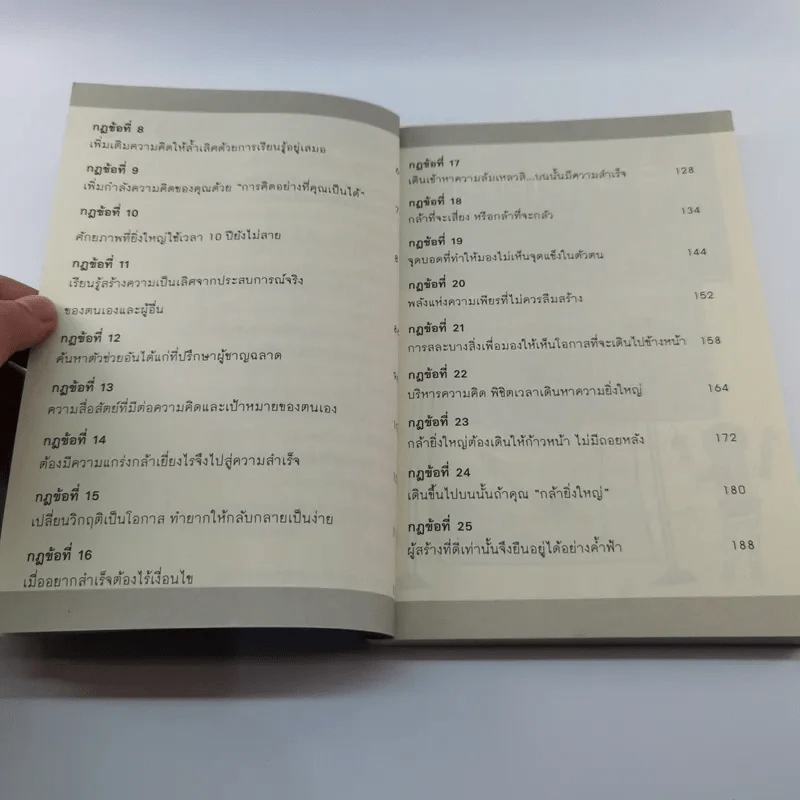 กฎข้อที่ 8
เพิ่มเติมความคิดให้ล้ำเลิศด้วยการเรียนรู้อยู่เสมอ
กฎข้อที่ 9
เพิ่มกำลังความคิดของคุณด้วย "การคิดอย่างที่คุณเป็นได้"
กฎข้อที่ 10
ศักยภาพที่ยิ่งใหญ่ใช้เวลา 10 ปียังไม่สาย
กฎข้อที่ 11
เรียนรู้สร้างความเป็นเลิศจากประสบการณ์จริง
ของตนเองและผู้อื่น
กฎข้อที่ 12
ค้นหาตัวช่วยอันได้แก่ที่ปรึกษาผู้ชาญฉลาด
กฎข้อที่ 13
ความสื่อสัตย์ที่มีต่อความคิดและเป้าหมายของตนเอง
กฎข้อที่ 14
ต้องมีความแกร่งกล้าเยี่ยงไรจึงไปสู่ความสำเร็จ
กฎข้อที่ 15
เปลี่ยนวิกฤติเป็นโอกาส ทำยากให้กลับกลายเป็นง่าย
กฎข้อที่ 16
เมื่ออยากสำเร็จต้องไร้เงื่อนไข
กฎข้อที่ 17
เดินเข้าหาความล้มเหลวสิ...บนนั้นมีความสำเร็จ 128
กฎข้อที่ 18
กล้าที่จะเสี่ยง หรือกล้าที่จะกลัว 134
กฎข้อที่ 19
จุดบอดที่ทำให้มองไม่เห็นจุดแข็งในตัวตน 144
กฎข้อที่ 20
พลังแห่งความเพียรที่ไม่ควรลืมสร้าง 152
กฎข้อที่ 21
การสละบางสิ่งเพื่อมองให้เห็นโอกาสที่จะเดินไปข้างหน้า 158
กฎข้อที่ 22
บริหารความคิด พิชิตเวลาเดินหาความยิ่งใหญ่ 164
กฎข้อที่ 23
กล้ายิ่งใหญ่ต้องเดินให้ก้าวหน้า ไม่มีถอยหลัง 172
กฎข้อที่ 24
เดินขึ้นไปบนนั้นถ้าคุณ "กล้ายิ่งใหญ่" 180
กฎข้อที่ 25
ผู้สร้างที่ดีเท่านั้นจึงยืนอยู่ได้อย่างค้ำฟ้า 188